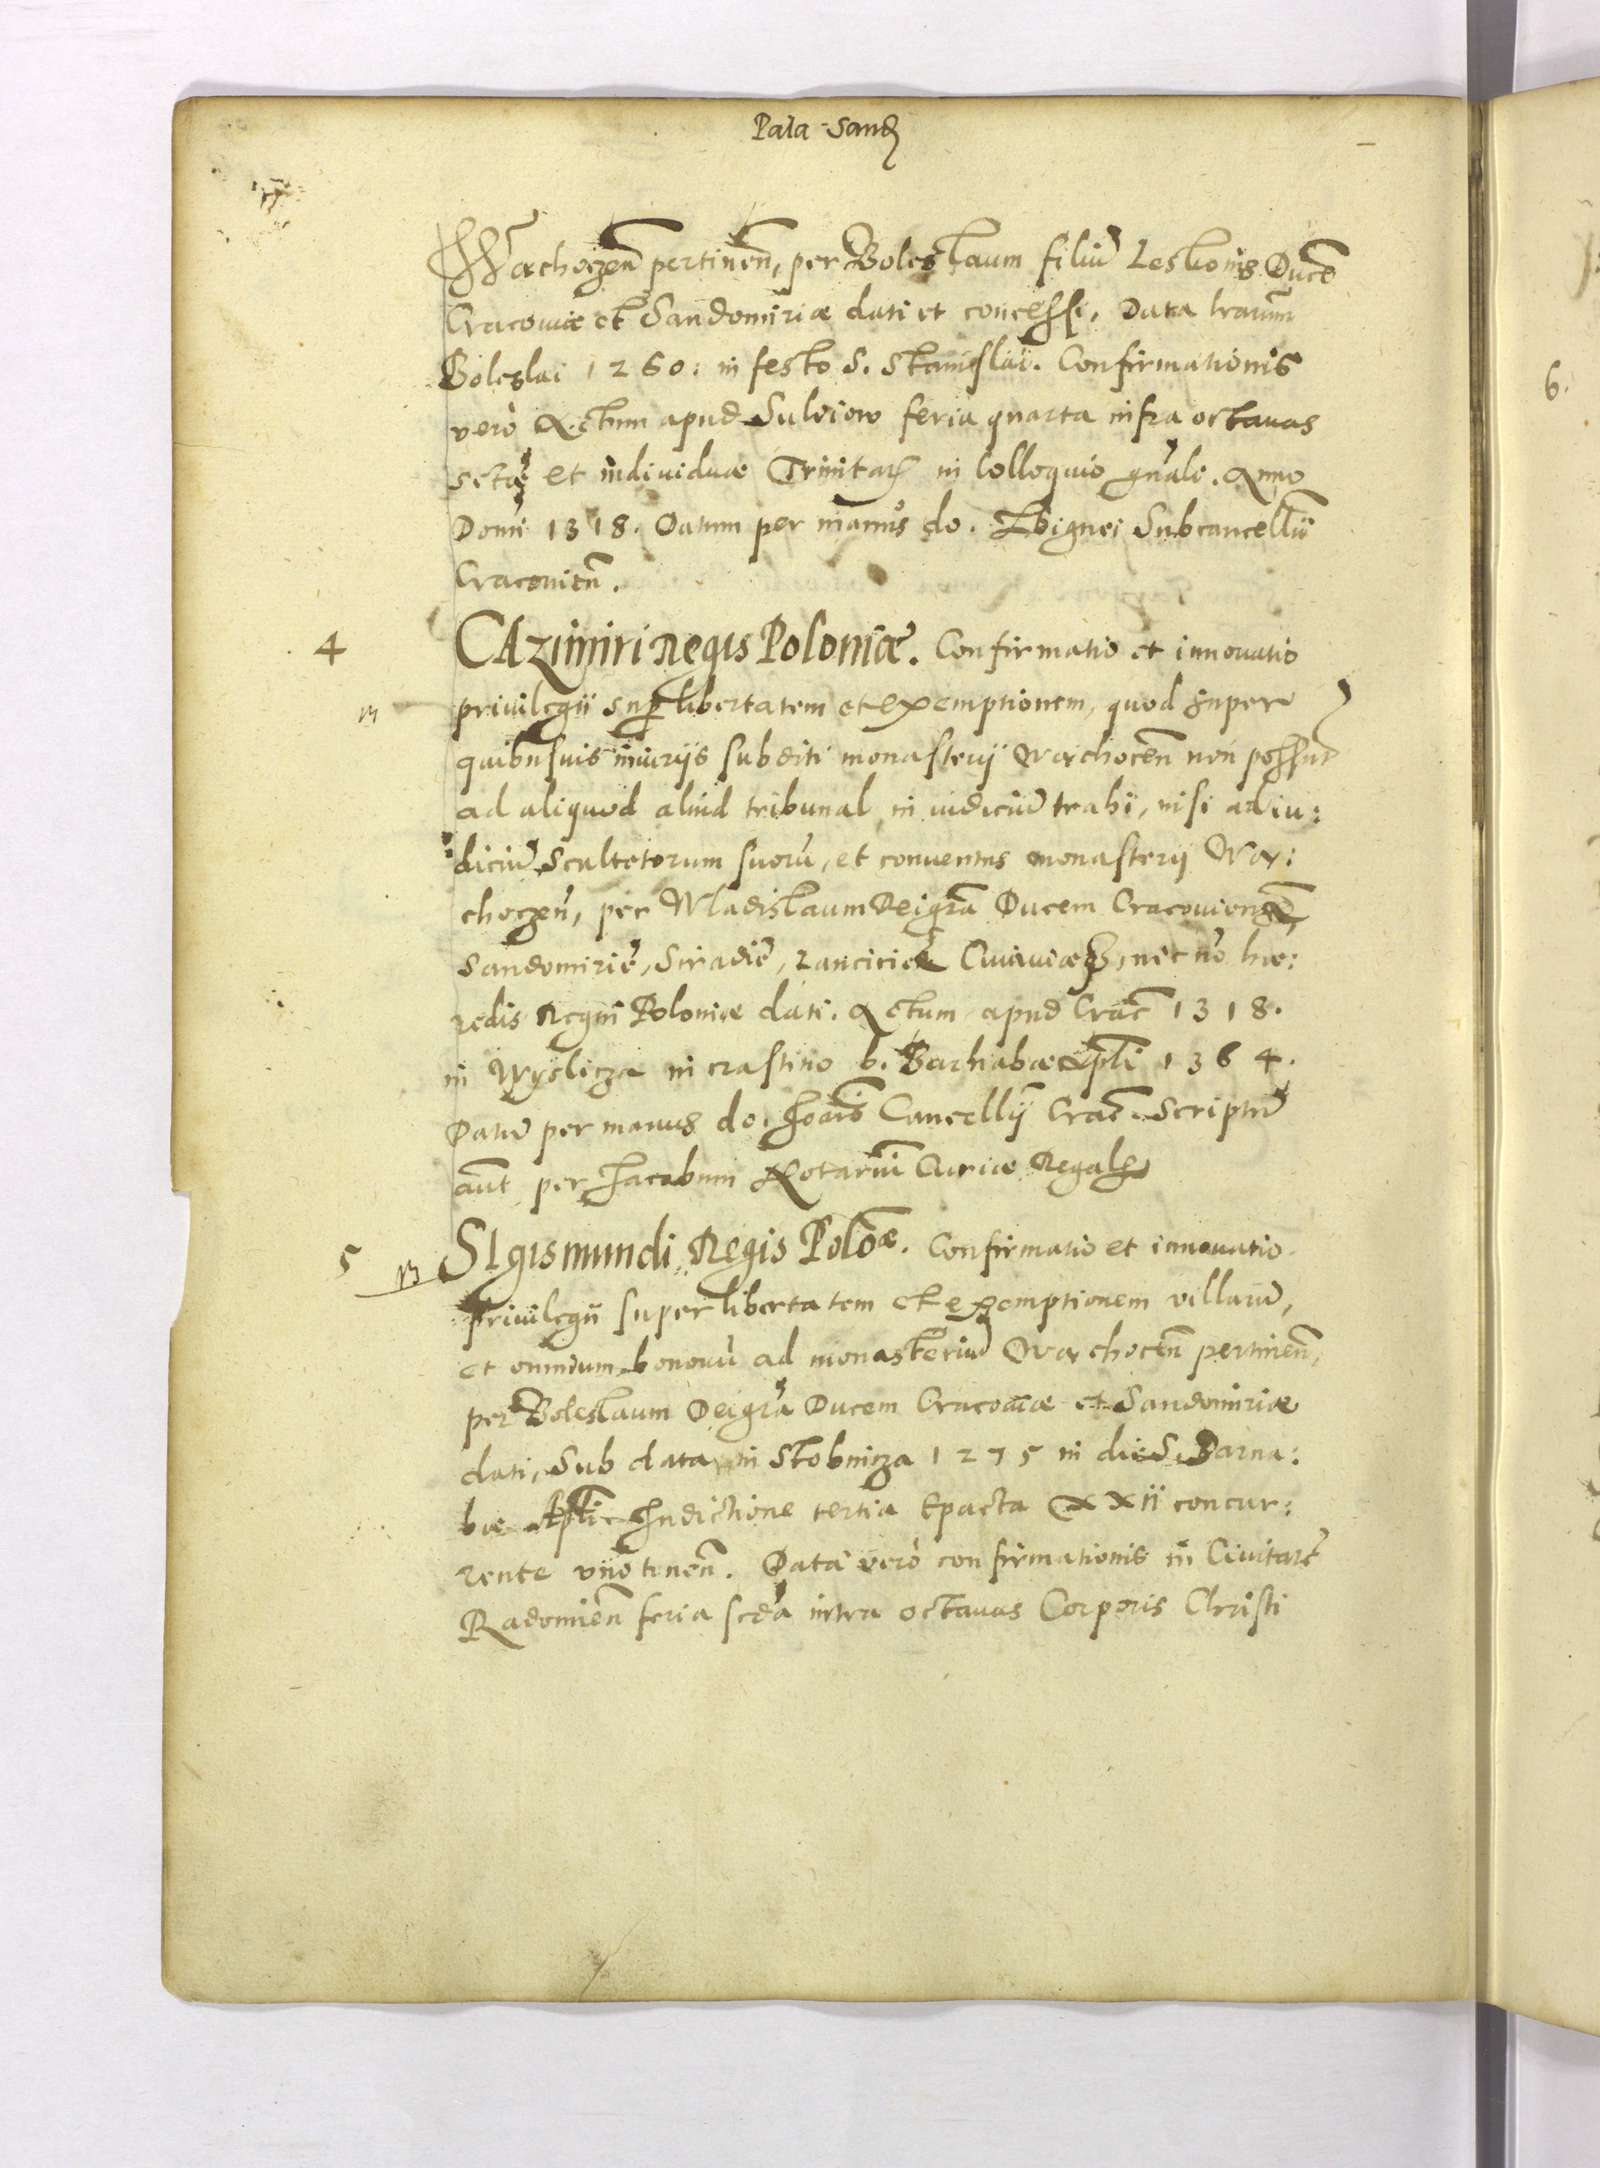 Pala: Sand
Wachoczen pertinen, per Boleslaum filiu Leskonis Duce
Cracoviæ et Sandomiriæ dati et concessi, Data lrarum
Boleslai 1260: in festo S. Stanislai. Confirmationis
vero Actum apud Suleiow feria quarta infra octavas
sctæ et individuæ Trinitatis in Colloquio gnali. Anno
Domi 1318. Datum per manus do. Zbignei Subcancellii
Cracovien.
4 CAzimiri Regis Poloniæ. Confirmatio et innovatio
privilegii super libertatem et exemptionem, quod super
quibusuis iniuriis subditi monasterij Wachocen non possunt
ad aliquod aliud tribunal in iudiciu trahi, nisi ad iu:
diciu Scultetorum suoru, et conventus monasterij Wa:
choczen, per Wladislaum Dei gra Ducem Cracovien
Sandomirie, Siradie, Lancicie Cuiaviæq, nec no hæ:
redis Regni Poloniæ dati. Actum apud Crac 1318.
in Wyslicza in crastino b. Barnabæ Apli 1364.
Datu per manus do. Joanis Cancellij Crac. Scriptu
aut per Jacobum Notarium Curiæ Regalis
5 SIgismundi Regis Polo​æ. Confirmatio et innovatio
Privilegii super libertatem et exemptionem villaru,
et omnium bonoru ad monasteriu Wachocen pertinen,
per Boleslaum Dei gra Ducem Cracoviæ et Sandomiriæ
dati, Sub data in Stobnicza 1275 in die S. Barna:
bæ Apli Indictione tertia Epacta XXII concur:
rente uno tinen. Data vero confirmationis in Civitate
Radomien feria scda intra octavas Corporis Christi
6.